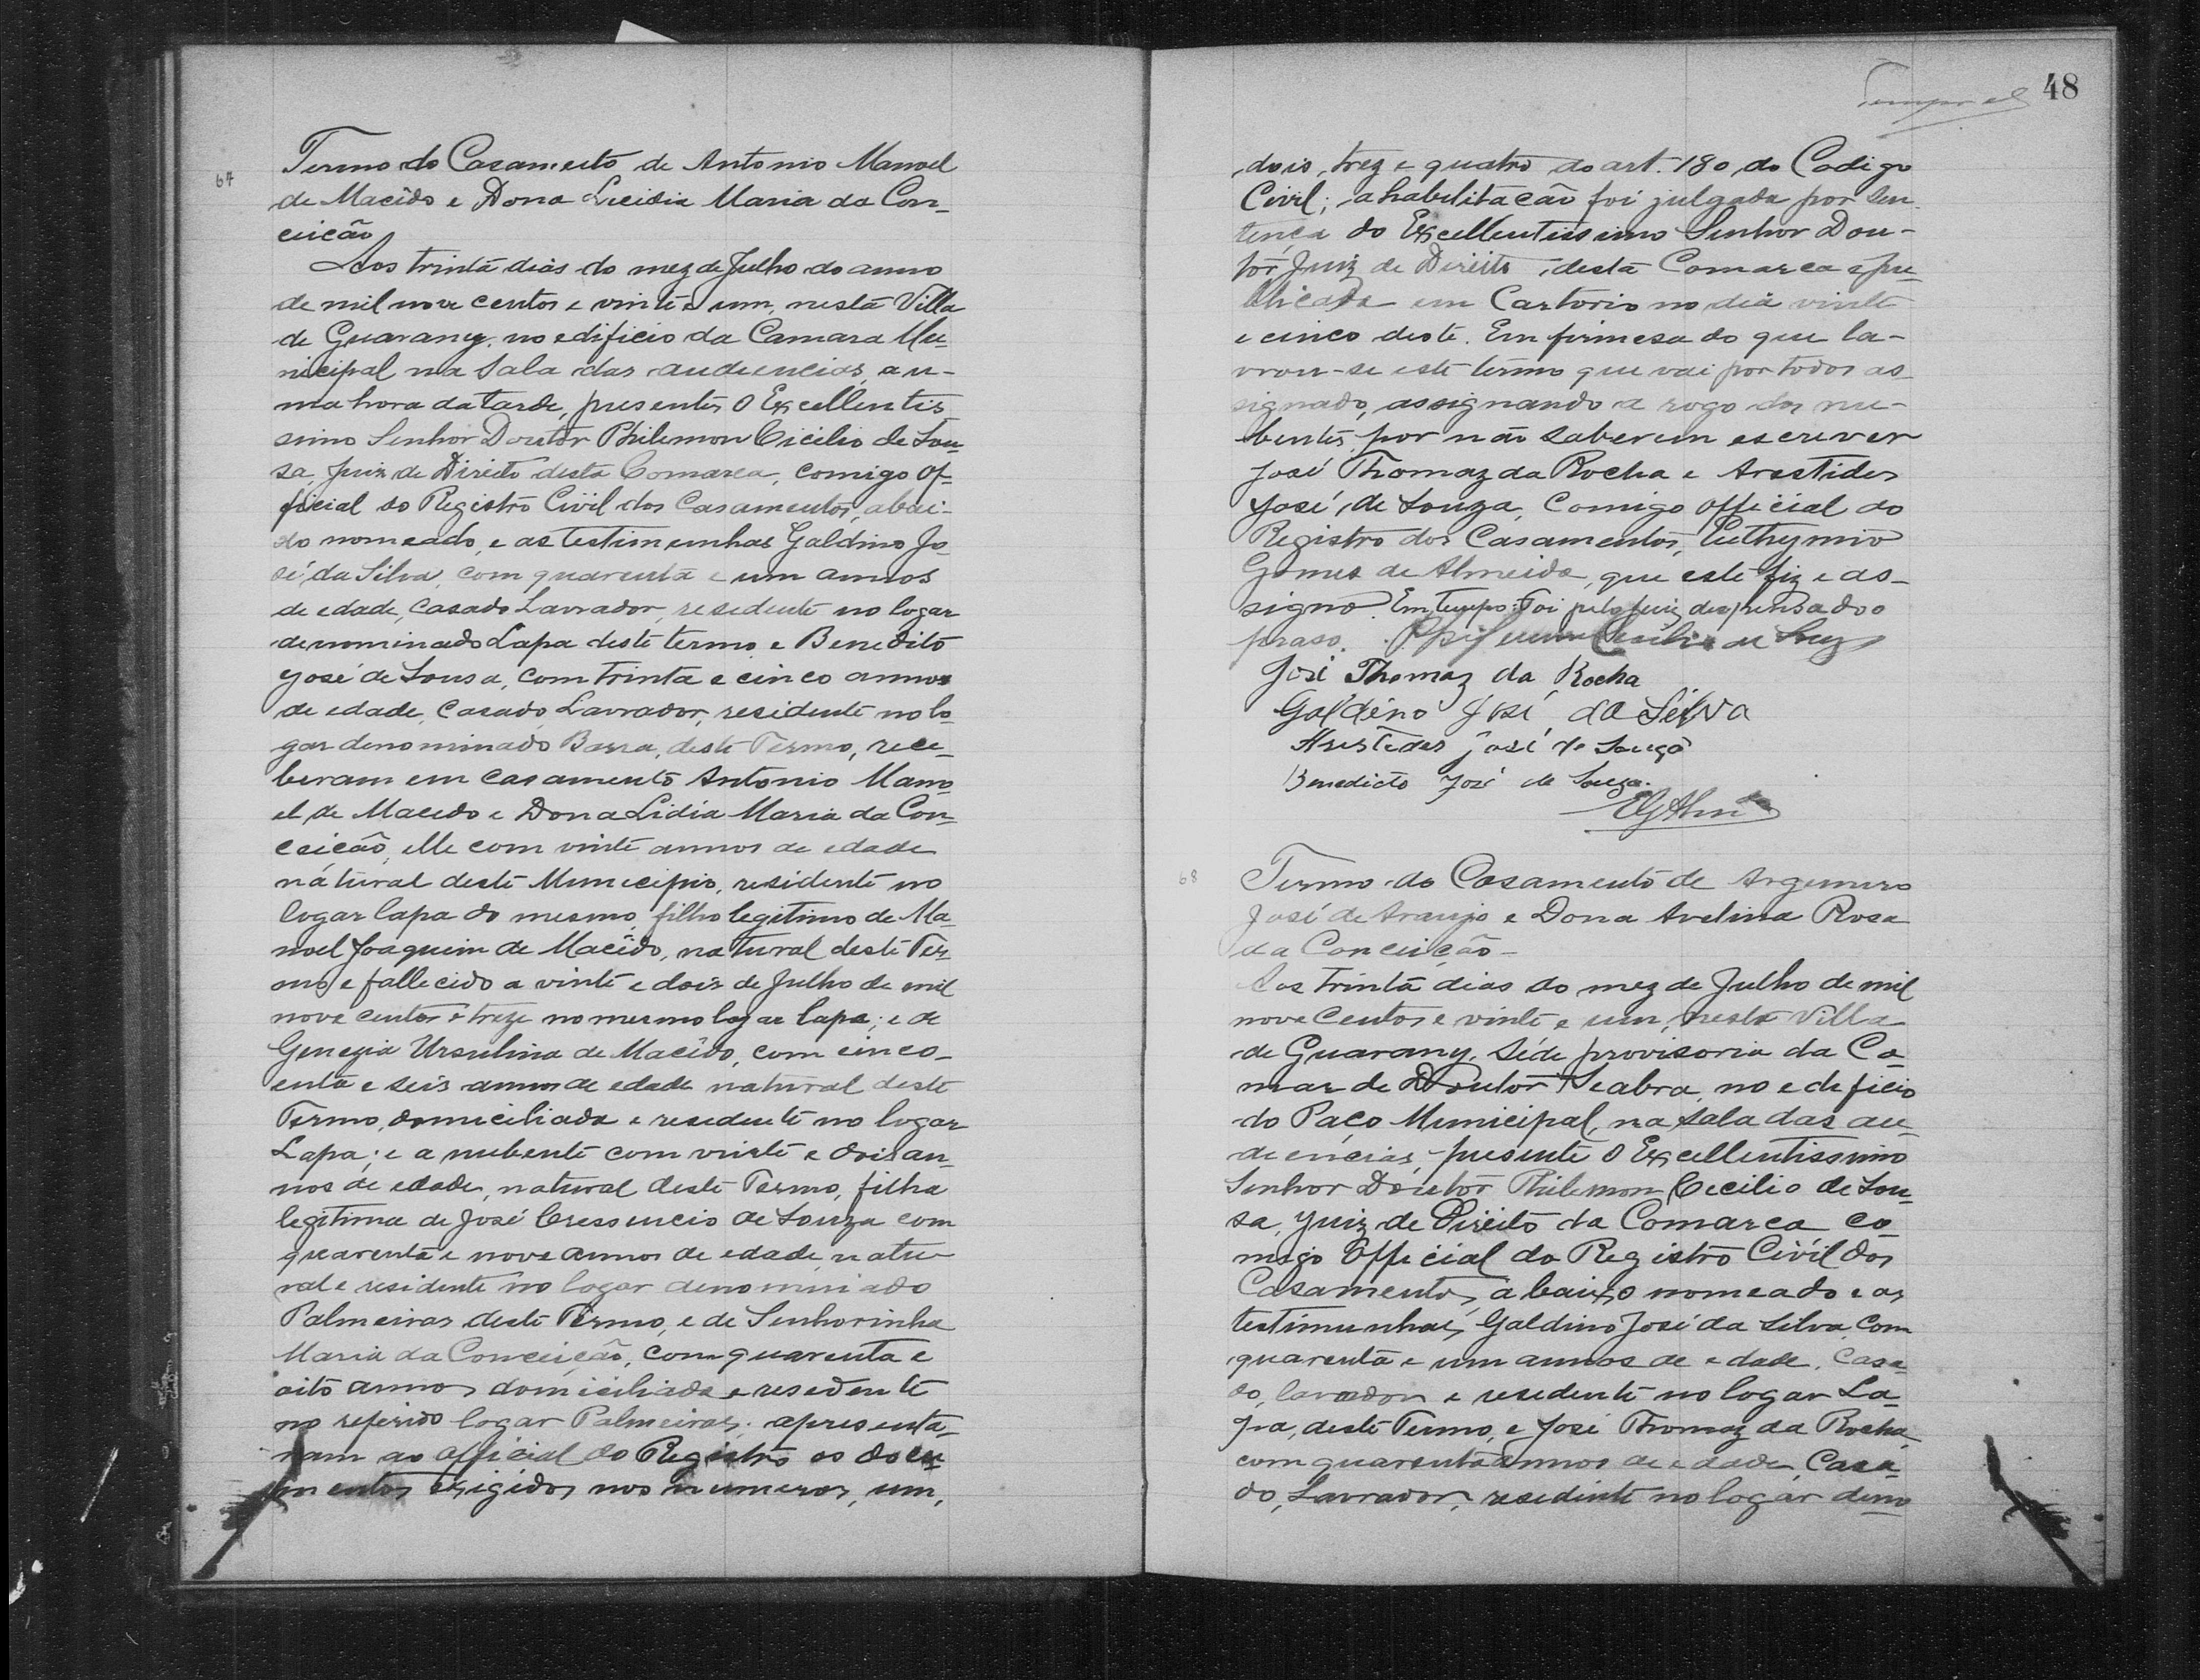 67
Termo do Casamento de Antonio Manoel
de Macêdo e Dona Licidia Maria da Con-
ceicão
Aos trinta dias do mez de Julho do anno
de mil nove centos e vinte e um, nesta Villa
de Guarany, no edificio da Camara Mu-
nicipal na sala das audiencias, a u-
ma hora da tarde, presentes o Excellentis-
simo Senhor Doutor Philemon Cicilio de Sou-
sa, Juiz de Direito desta Comarca, comigo Of-
ficial do Registro Civil dos Casamentos, abai-
xo nomeado, e as testimunhas Galdino Jo-
sé, da Silva, com quarenta e um annos
de edade, casado Lavrador, residente no logar
denominado Lapa deste termo e Benedito
José de Sousa, com trinta e cinco annos
de edade, casado Lavrador, residente no lo-
gar denominado Barra, deste Termo, rece-
beram em casamento Antonio Mano-
el de Macedo e Dona Lidia Maria da Con-
ceicão, elle com vinte annos de edade
natural deste Municipio, residente no
logar lapa do mesmo, filho legitimo de Ma-
noel Joaquim de Macêdo, natural deste Ter-
mo, e fallecido a vinte e dois de Julho de mil
nove centos e treze no mesmo logar lapa; e de
Genezia Ursulina de Macêdo, com cinco-
enta e seis annos de edade natural deste
Termo, domiciliada e residente no logar
Lapa; e a nubente com vinte e dois an-
nos de edade, natural deste Termo, filha
legitima de José Cressencio de Souza com
quarenta e nove annos de edade, natu-
ral e residente no logar denominado
Palmeiras deste Termo, e de Senhorinha
Maria da Conceicão, com quarenta e
oito annos domiciliada e residente
no referido logar Palmeiras; apresenta-
ram ao official do Registro os docu-
mentos exigidos nos numeros, um,
48
dois, trez e quatro do art. 180 do Codigo
Civil; a habilitacão foi julgada por sen-
tença do Excellentissimo Senhor Dou-
tor Juiz de Direito, desta Comarca e pu-
blicada em Cartorio no dia vinte
e cinco deste. Em firmesa do que la-
vrou-se este termo que vai por todos as-
signado, assignando a rogo dos nu-
bentes, por não saberem escrever
José Thomaz da Rocha e Arestides
José, de Souza, comigo official do
Registro dos Casamentos, Euthymio
Gomes de Almeida, que este fiz e as-
signo. Em tempo: Foi pelo Juiz despensado o
praso. Philemon Cecilio de Souza
José Thomaz da Rocha
Galdino José da Silva
Aristedes José de Souza
Benedicto José de Souza.
EGAlmda
68
Termo do Casamento de Argemiro
José de Araujo e Dona Avelina Rosa
da Conceicão -
Aos trinta dias do mez de Julho de mil
nove centos e vinte e um, nesta Villa
de Guarany, séde provisoria da Co-
mar de Doutor Seabra, no edificio
do Paço Municipal, na sala das au-
diencias, presente o Excellentissimo
Senhor Doutor Philemon Cecilio de Sou-
sa, Juiz de Direito da Comarca co-
migo Official do Registro Civil dos
Casamentos, abaixo nomeado e as
testimunhas, Galdino José da Silva, com
quarenta e um annos de edade, casa-
do, lavrador e residente no logar La-
pa, deste Termo, e José Thomaz da Rocha,
com quarenta annos de edade, casa-
do, Lavrador, residente no logar deno-